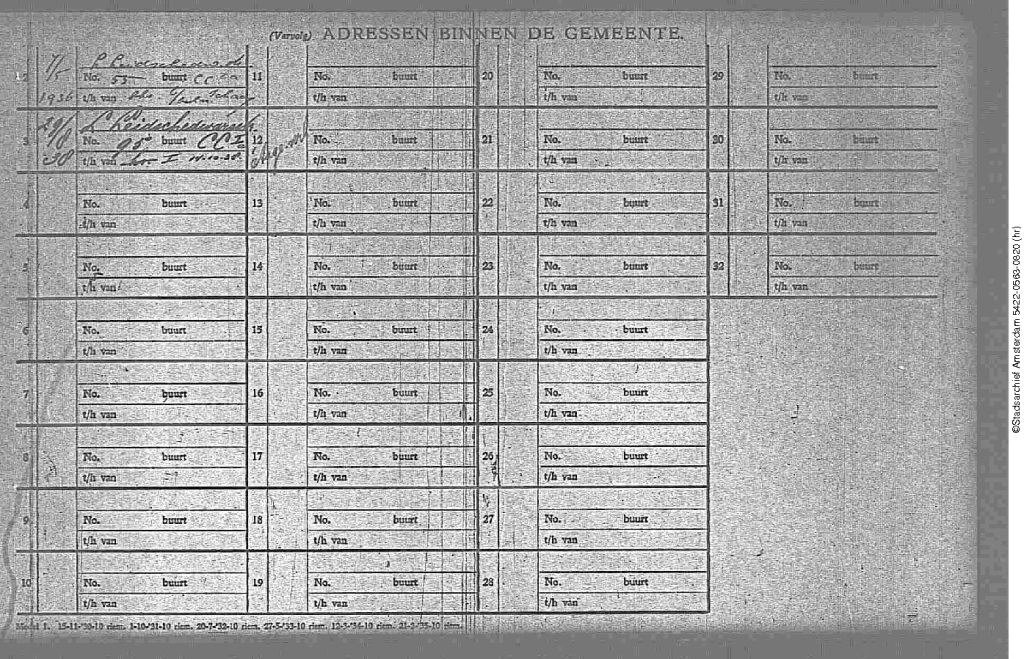 (Vervolg) ADRESSEN BINNEN DE GEMEENTE.
2 7/-
No. 55 buurt CC
1936 t/h van
29/8 L Leidschedwarsstr
3 No. 95 buurt CC
38 t/h van I
4 No. buurt
t/h van
5 No. buurt
t/h van
6 No. buurt
t/h van
7 No. buurt
t/h van
8 No. buurt
t/h van
9 No. buurt
t/h van
10 No. buurt
t/h van
11 No. buurt
t/h van
12 No. buurt
t/h van
13 No. buurt
t/h van
14 No. buurt
t/h van
15 No. buurt
t/h van
16 No. buurt
t/h van
17 No. buurt
t/h van
18 No. buurt
t/h van
19 No. buurt
t/h van
20 No. buurt
t/h van
21 No. buurt
t/h van
22 No. buurt
t/h van
23 No. buurt
t/h van
24 No. buurt
t/h van
25 No. buurt
t/h van
26 No. buurt
t/h van
27 No. buurt
t/h van
28 No. buurt
t/h van
29 No. buurt
t/h van
30 No. buurt
t/h van
31 No. buurt
t/h van
32 No. buurt
t/h van
Model 1. 15-11-'30-10 riem. 1-10-'31-10 riem. 20-7-'32-10 riem. 27-5-'33-10 riem. 12-3-'34-10 riem. 21-2-'35-10 riem.
©Stadsarchief Amsterdam 5422-0563-0820 (hr)